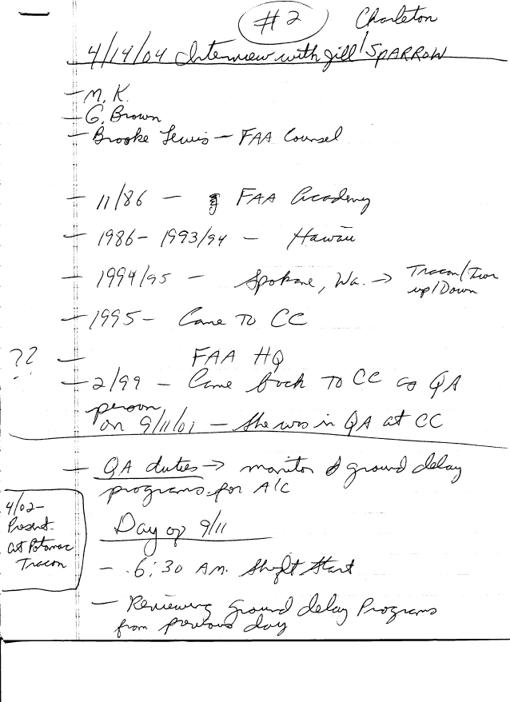 #2
Charleton
4/14/04 Interview with Jill/SPARROW
- M.K.
- G. Brown
- Brooke Lewis - FAA Counsel
- 11/86 - FAA Academy
- 1986 - 1993/94 - Hawaii
- 1994/95 - Spokane, Wa. → Tracon/Twr
up/Down
- 1995 - Came To CC
?? - FAA HQ
- 2/99 - Came back To CC as QA
person
on 9/11/01 - She was in QA at CC
- QA duties → monitor ground delay
programs for A/C
4/02-
Present
at Potomac
Tracon
Day of 9/11
- 6:30 A.M. Shift Start
- Reviewing Ground delay Programs
from previous day